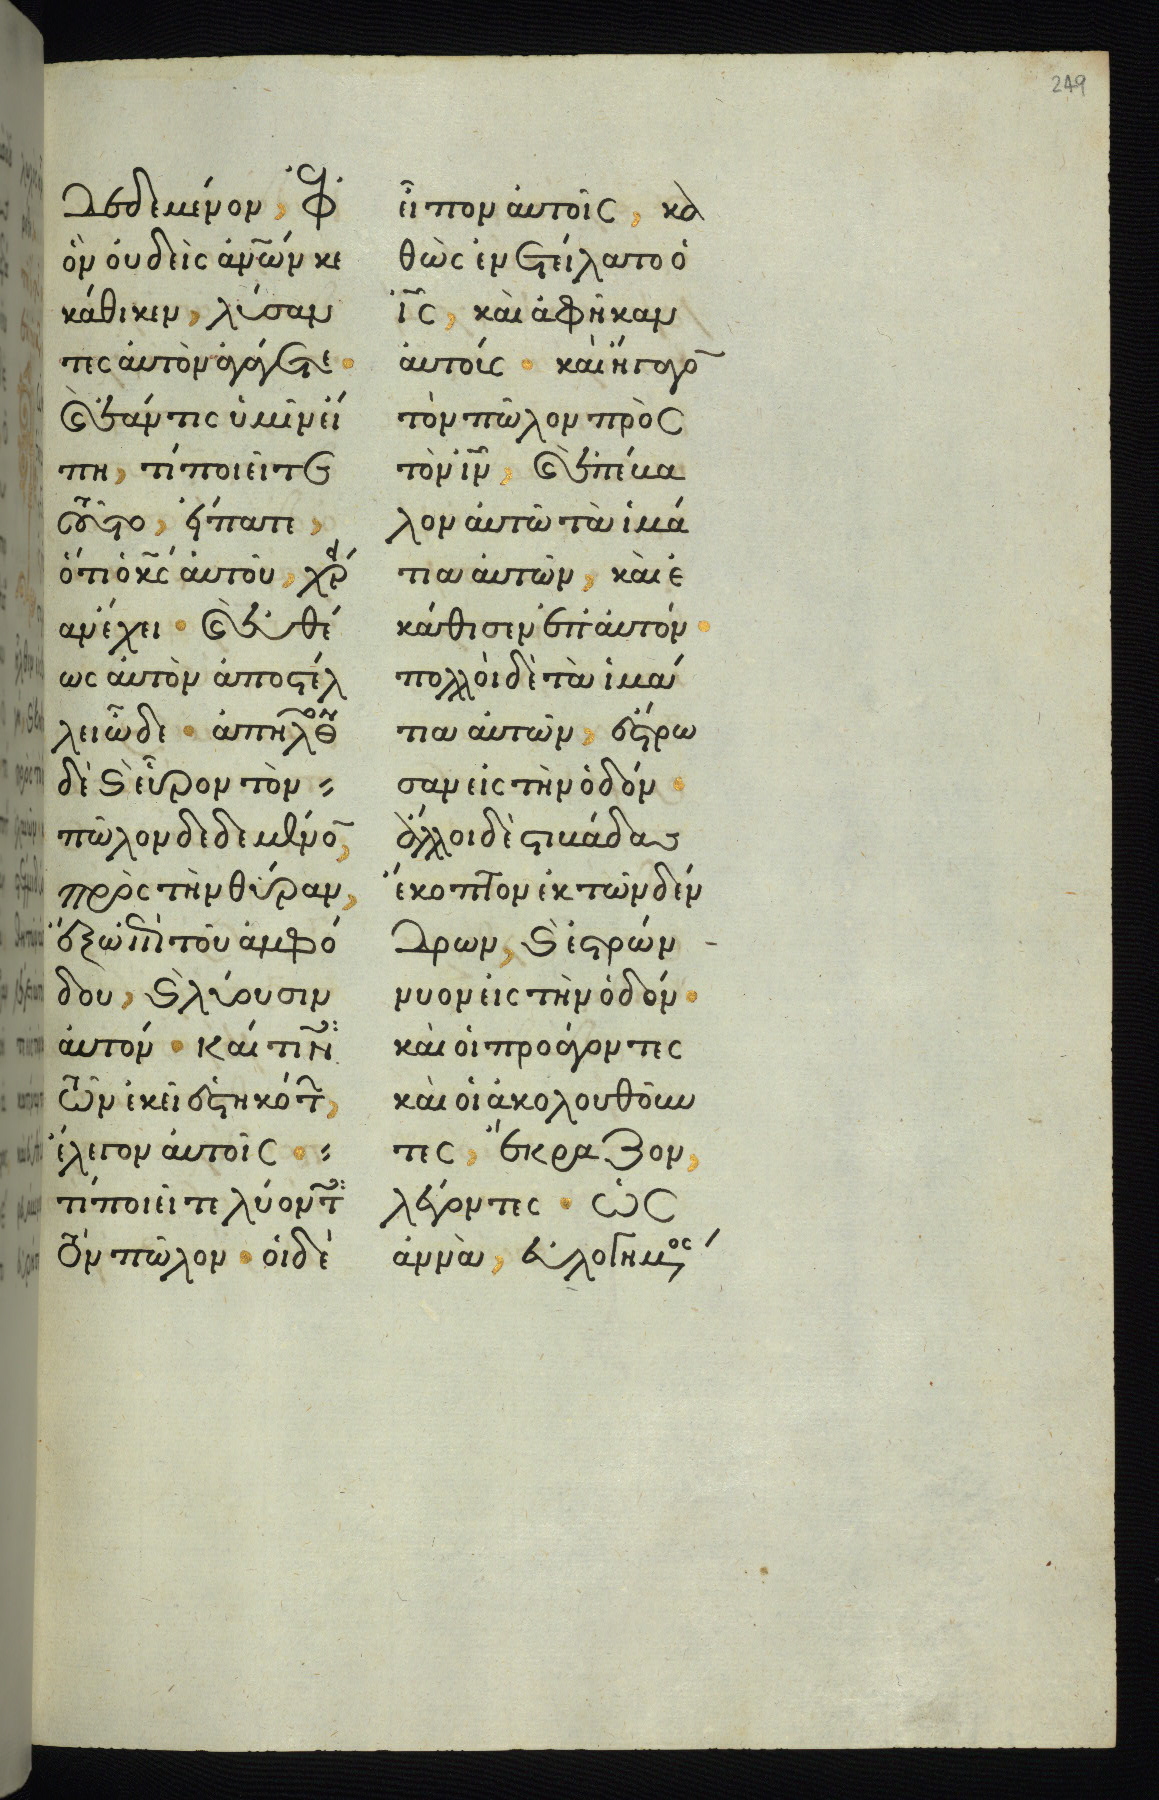 249
δεδεμένον, ἐφ
ὃν οὐδεὶς ἀνῶν κε
κάθικεν, λύσαν
τες αὐτὸν ἀγάγετε.
καὶ ἐάν τις ὑμῖν εἴ
πη, τί ποιεῖτε
τοῦτο, εἴπατε,
ὅτι ὁ κς αὐτοῦ, χρεί
αν ἔχει. καὶ εὐθέ
ως αὐτὸν ἀποστέλ
λει ὧδε. ἀπῆλθον
δὲ καὶ εὗρον τὸν
πῶλον δεδεμένον,
πρὸς τὴν θύραν,
ἔξω ἐπὶ τοῦ ἀμφό
δου, καὶ λύουσιν
αὐτόν. καί τινες
τῶν ἐκεῖ ἑστηκότων,
ἔλεγον αὐτοῖς.
τί ποιεῖτε λύοντες
τὸν πῶλον. οἱ δὲ
εἶπον αὐτοῖς, κα
θὼς ἐνετείλατο ὁ
ις, καὶ ἀφῆκαν
αὐτούς. καὶ ἤγαγον
τὸν πῶλον πρὸς
τὸν ιν, καὶ ἐπέβα
λον αὐτῶ τὰ ἱμά
τια αὐτῶν, καὶ ἐ
κάθισεν ἐπ αὐτόν.
πολλοὶ δὲ τὰ ἱμά
τια αὐτῶν, ἔστρω
σαν εἰς τὴν ὁδόν.
ἄλλοι δὲ στιβάδας
ἔκοπτον ἐκ τῶν δέν
δρων, καὶ ἐστρών
νυον εἰς τὴν ὁδόν.
καὶ οἱ προάγοντες
καὶ οἱ ἀκολουθοῦν
τες, ἔκραζον,
λέγοντες. ὡσ
αννὰ, εὐλογημένος